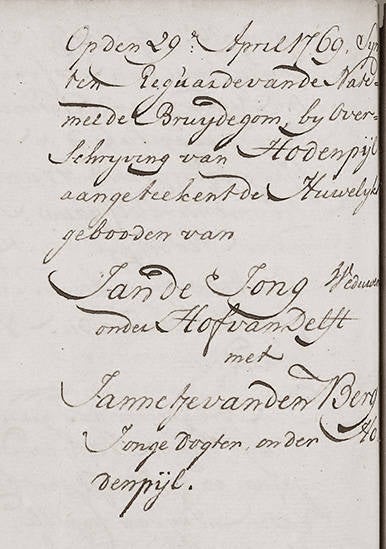 Op den 29e. April 1769. Syn
ten Reguarde van de Nate-
melde Bruydegom, by Over-
Schryving van Hodenpijl
aangeteekent de Huwelyks
gebooden van
Jan de Jong Weduwen
onder Hof van Delft
met
Jannetje van den Berg
Jonge Dogter, onder Ho
denpijl.